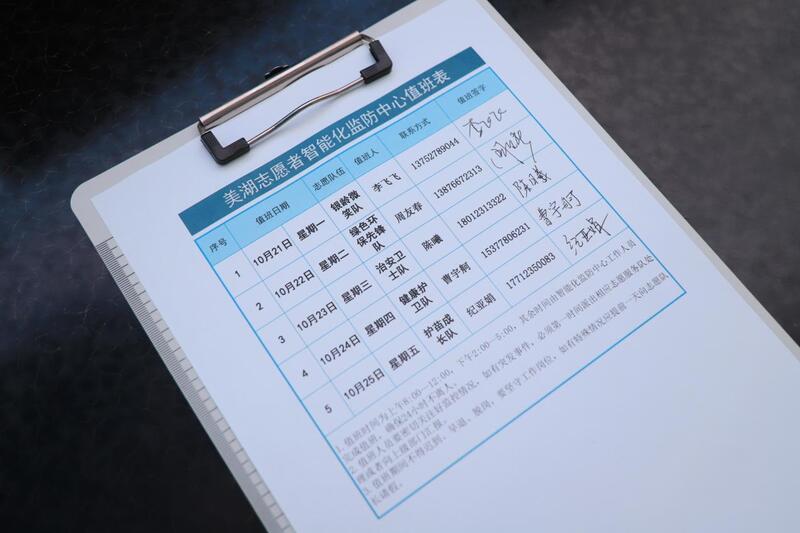 美湖志愿者智能化监防中心值班表
序号 值班日期 志愿队伍 值班人 联系方式 值班签字
1 10月21日 星期一 银龄微笑队 李飞飞 13752789044 李飞飞
2 10月22日 星期二 绿色环保先锋队 周友春 13876672313 周友春
3 10月23日 星期三 治安卫士队 陈曦 18012313322 陈曦
4 10月24日 星期四 健康护卫队 曹宇舸 15377806231 曹宇舸
5 10月25日 星期五 护苗成长队 纪亚娟 17712350083 纪亚娟
1. 值班时间为上午8:00—12:00，下午2:00—5:00，其余时间由智能化监防中心工作人员
完成值班，确保24小时不离人。
2. 值班人员要密切关注好监控情况，如有突发事件，必须第一时间派出相应志愿服务队处
理或者向上级部门汇报。
3. 值班期间不得迟到、早退、脱岗，要坚守工作岗位，如有特殊情况应提前一天向志愿队
长请假。